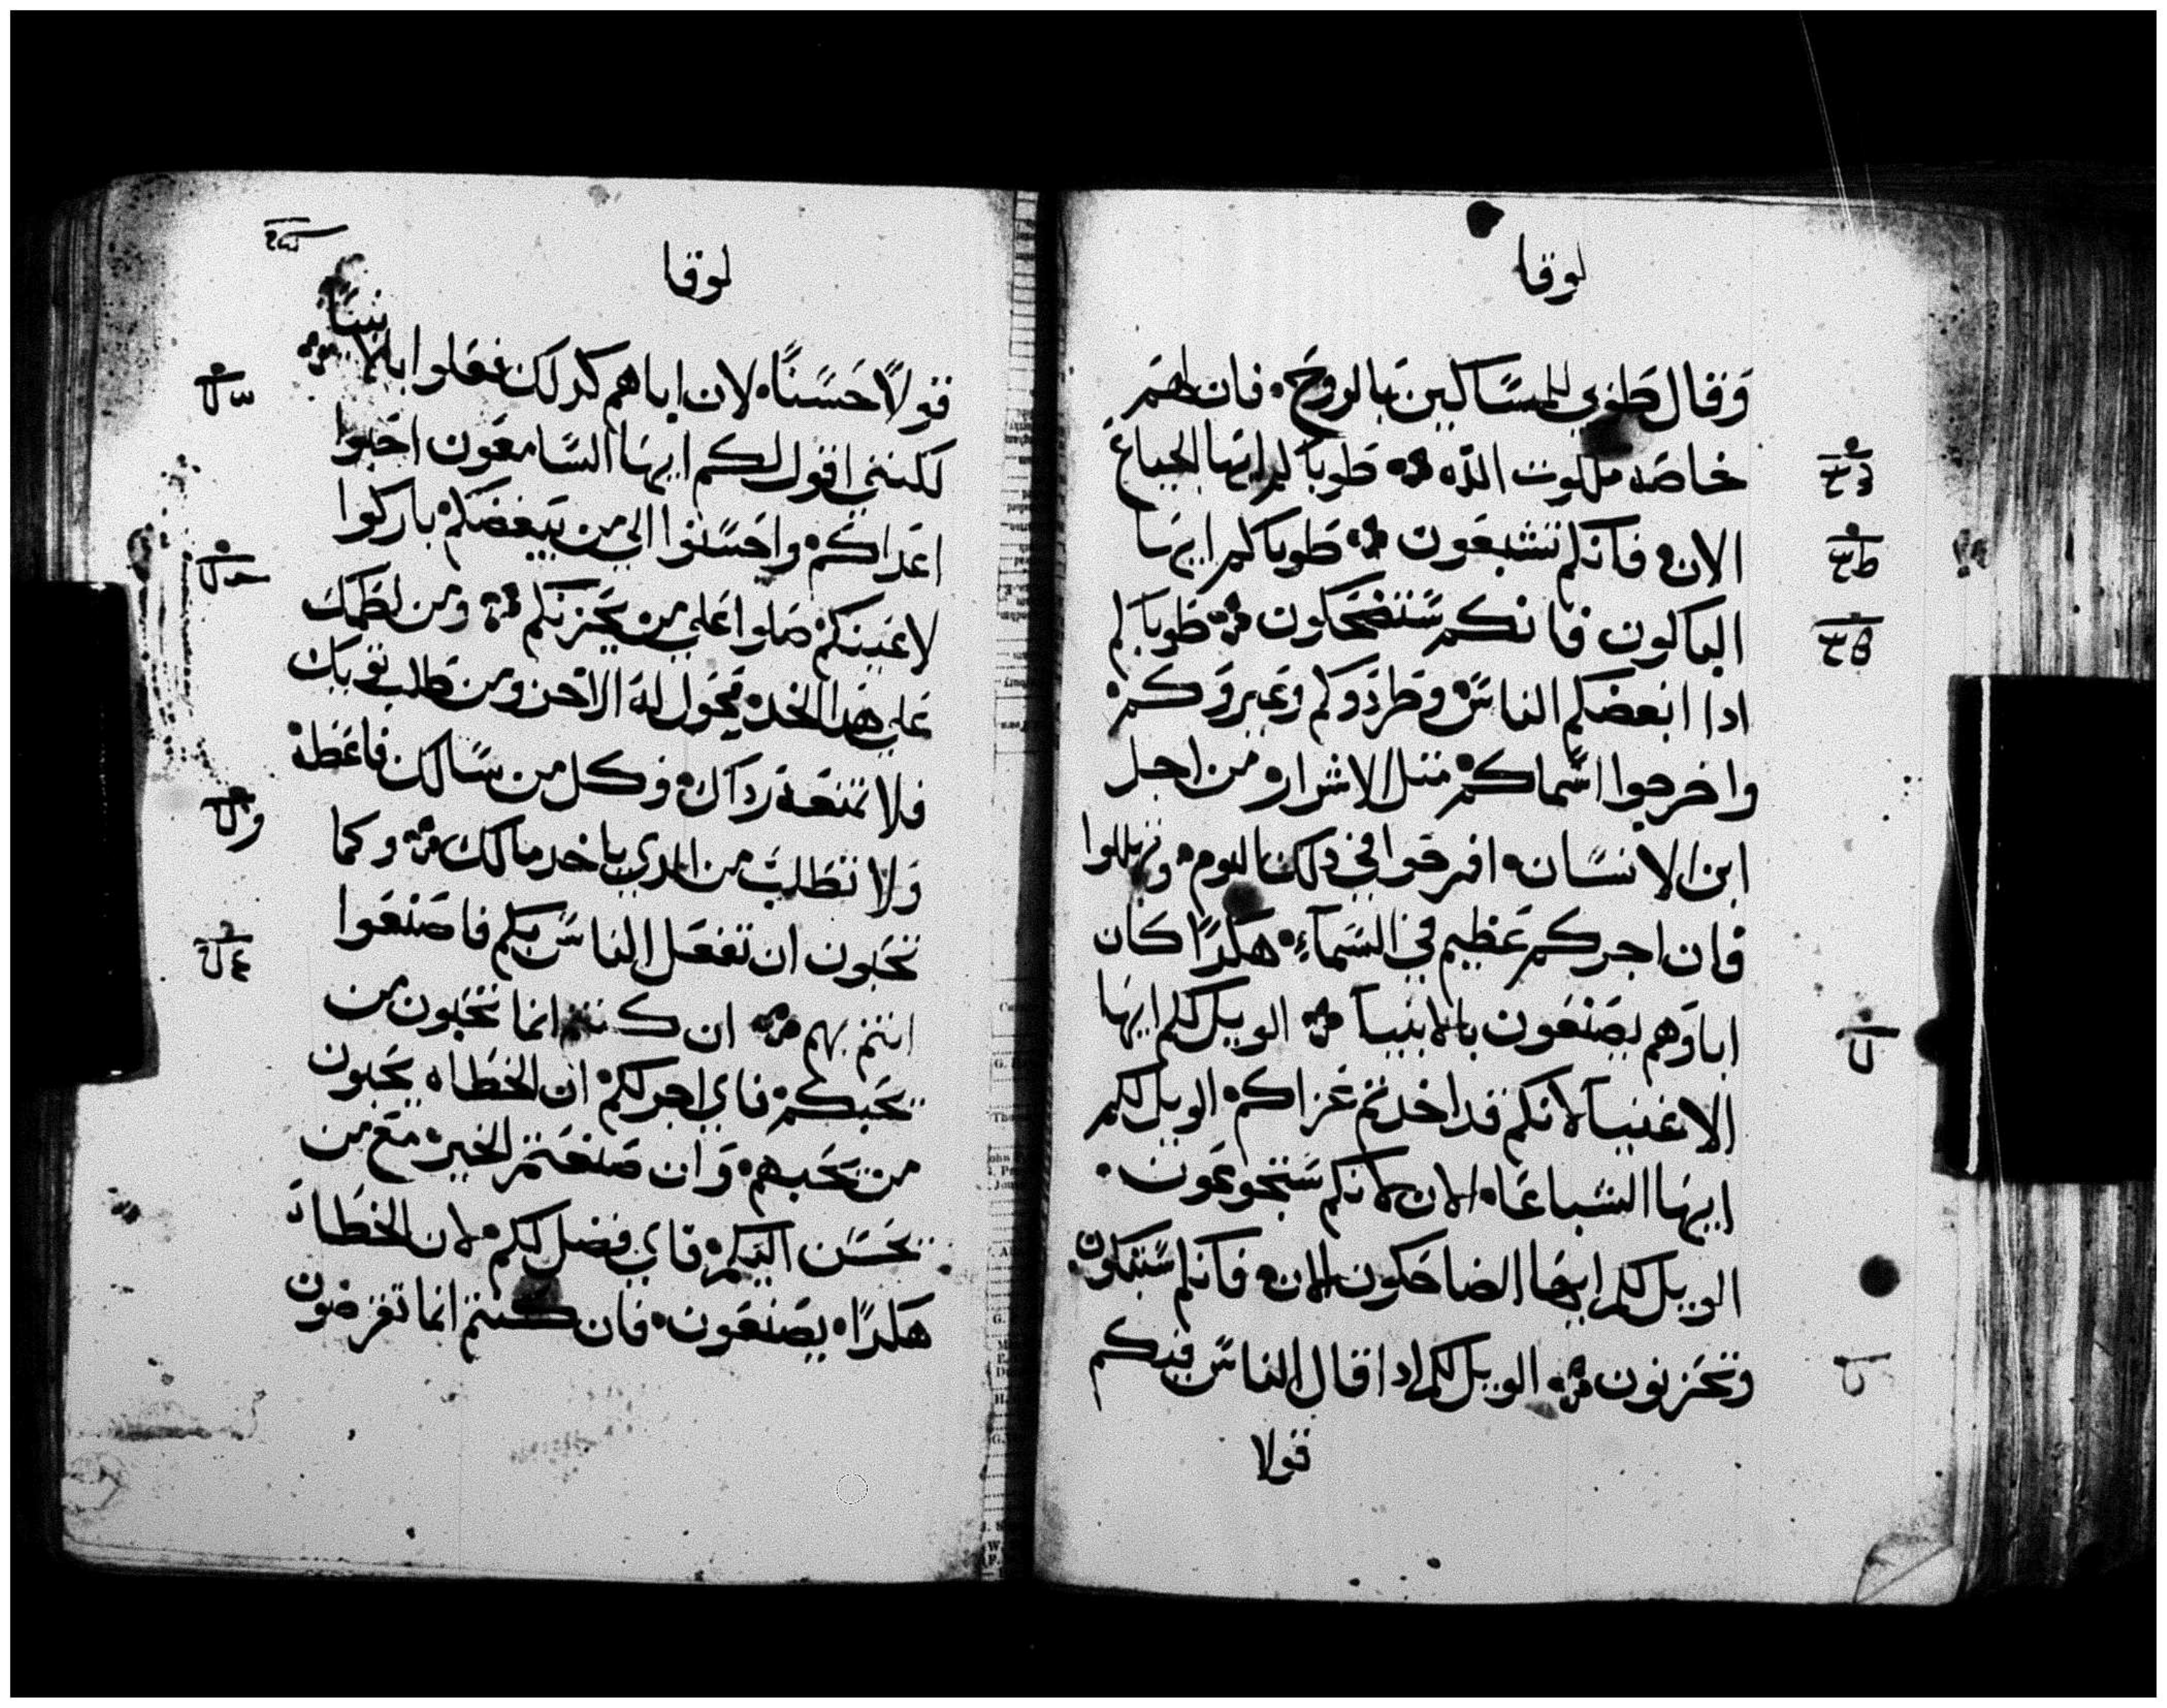 لوقا
وقال طوبي للمساكين بالروح فان لهم
خاصه ملكوت الله طوبا لكم ايها الجياع
الان فانكم تشبعون طوبا لكم ايها
الباكون فانكم ستضحكون طوبا لكم
ادا ابغضكم الناس وطردوكم وعيروكم
واخرجوا اسماكم متل الاشرار من اجل
ابن الانسان افرحوا في دلك اليوم وتهللوا
فان اجركم عظيم في السماء هكدا كان
اباوهم يصنعون بالانبيا الويل لكم ايها
الاغنيا لانكم قد اخدتم عزاكم الويل لكم
ايها الشباعا الان لانكم ستجوعون
الويل لكم ايها الضاحكون الان فانكم ستبكون
وتحزنون الويل لكم ادا قال الناس فيكم
قولا
لوقا
قولا حسنا لان اباهم كدلك فعلوا بالانبيا
لكنني اقول لكم ايها السامعون احبوا
اعداكم واحسنوا الي من يبغضكم باركوا
لاعنيكم صلوا علي من يحزنكم ومن لطمك
علي هدا الخد فحول له الاخر ومن طلب توبك
فلا تمنعه رداك وكل من سالك فاعطه
ولا تطلب من الدي ياخد مالك وكما
تحبون ان تفعل الناس بكم فاصنعوا
انتم بهم ان كنتم انما تحبون من
يحبكم فاي اجر لكم ان الخطاه يحبون
من يحبهم وان صنعتم الخير مع من
يحسن اليكم فاي فضل لكم لان الخطاه
هكدا يصنعون فان كنتم انما تقرضون